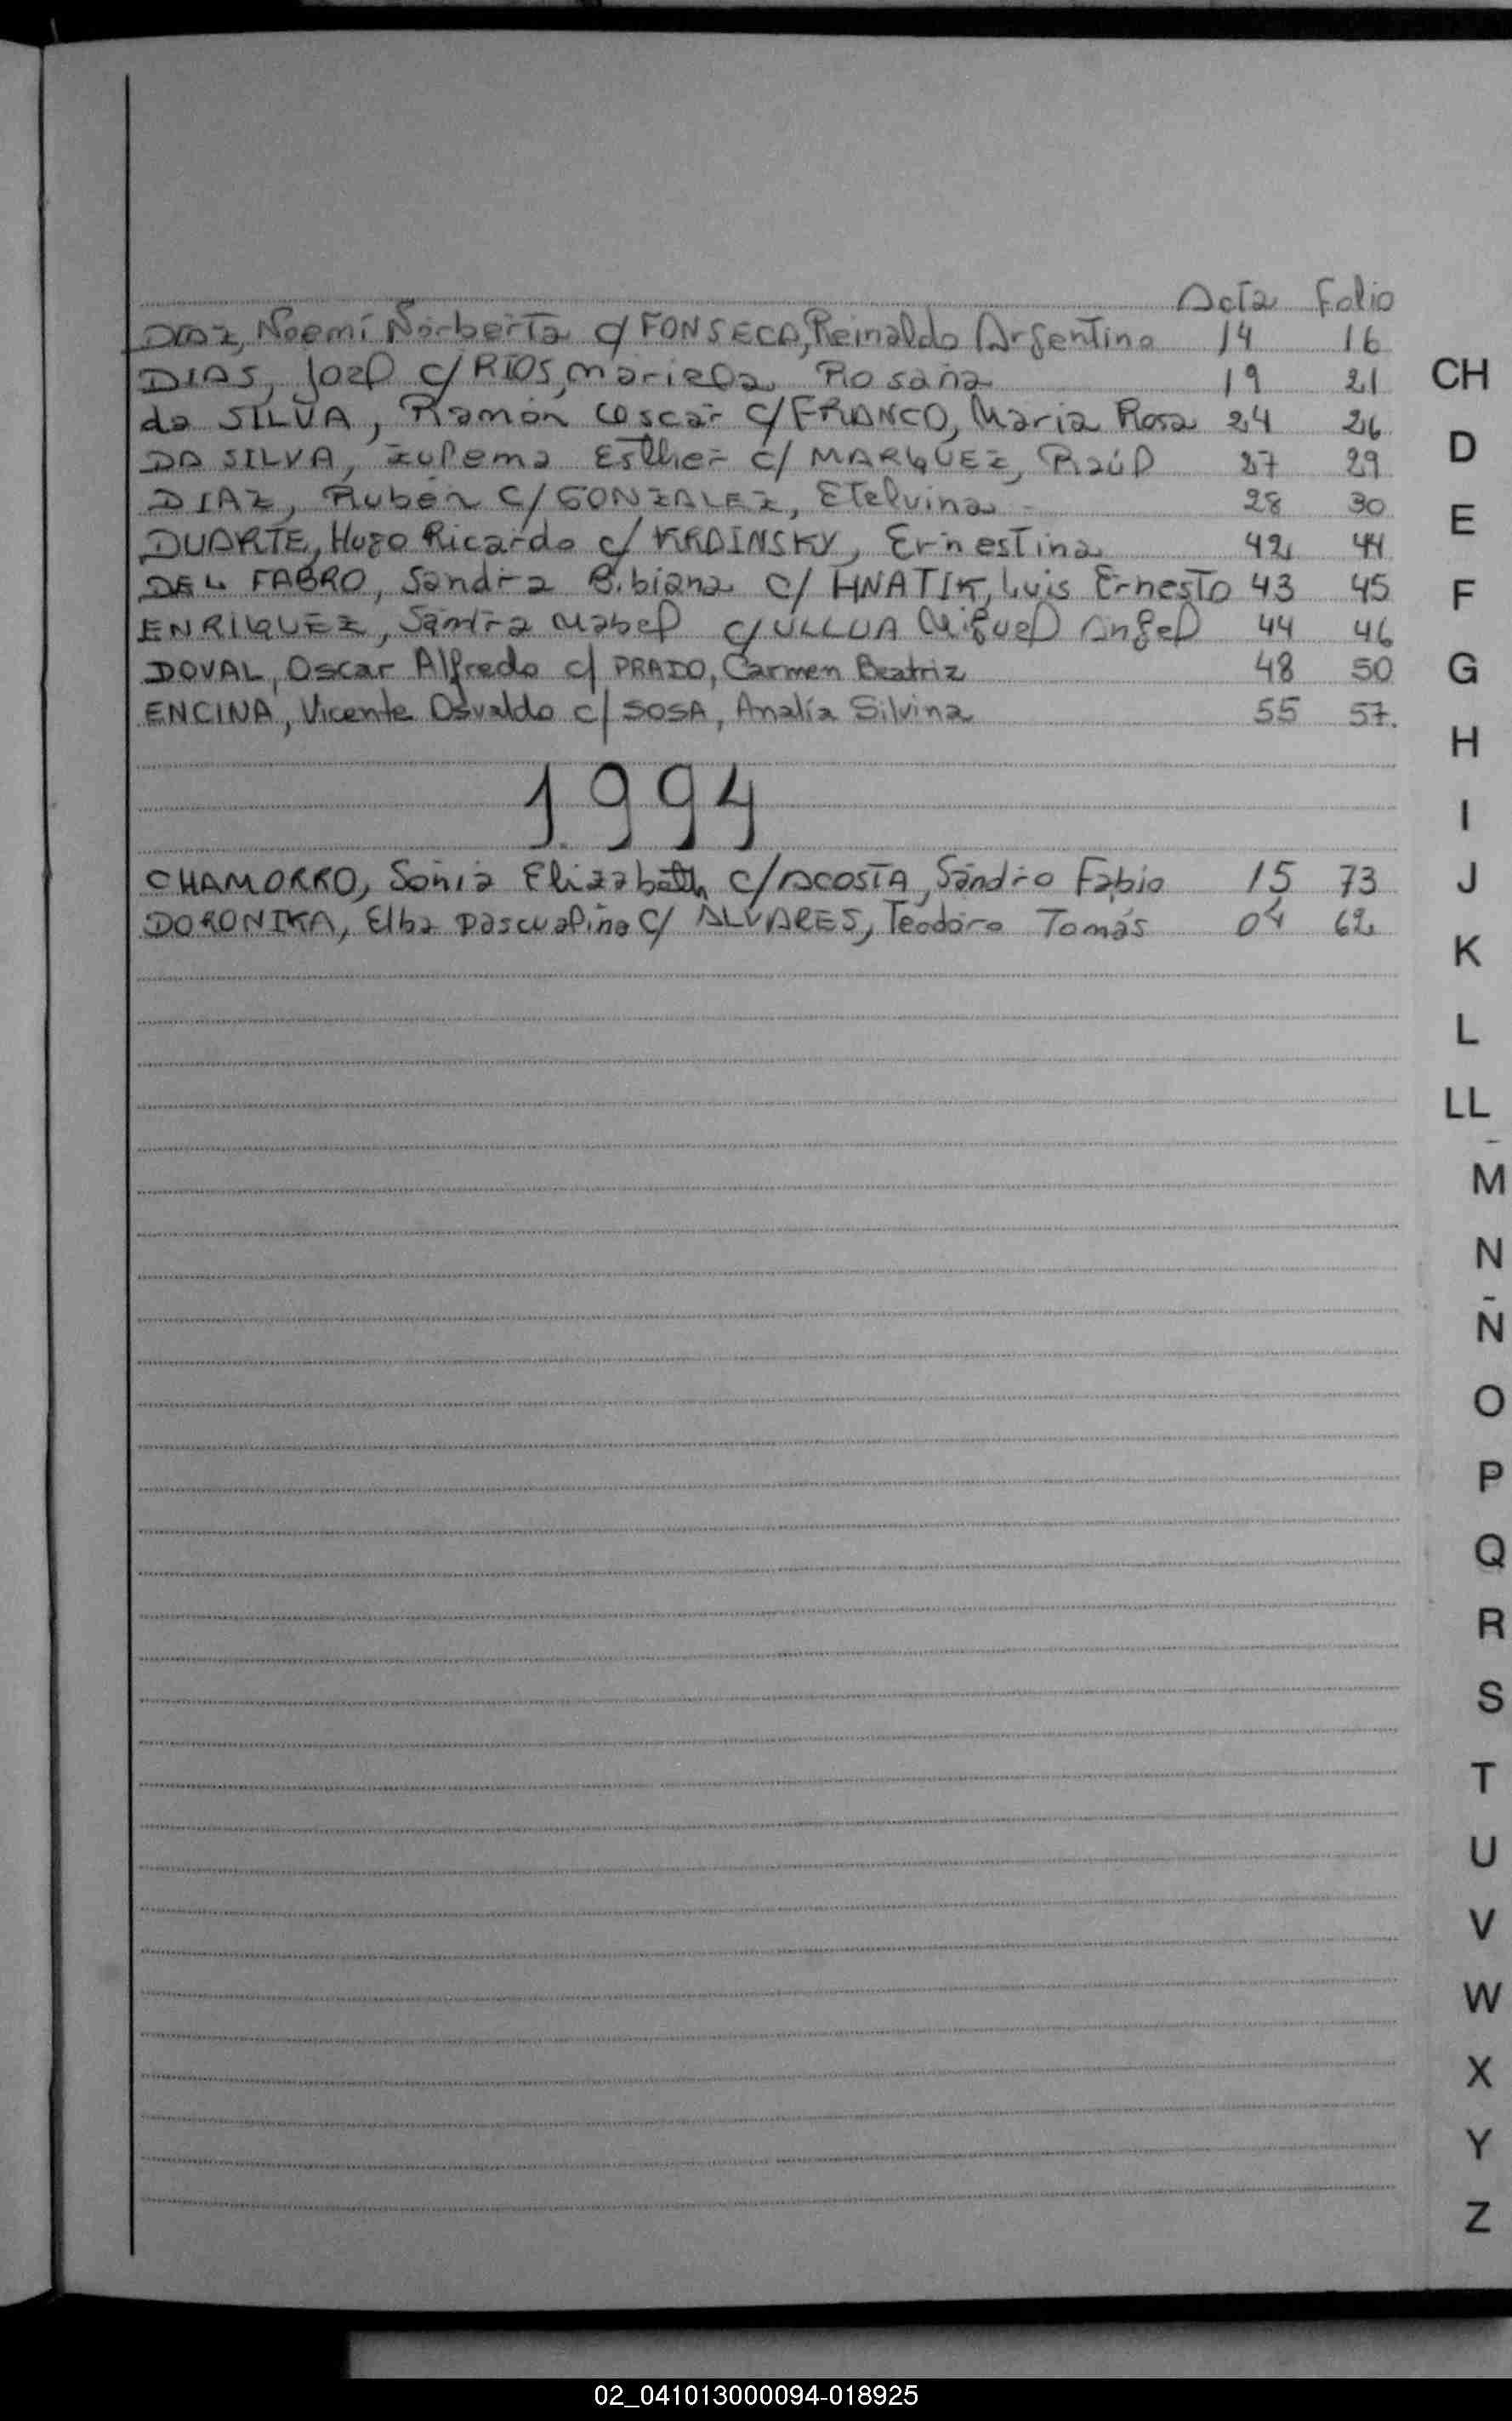 Acta Folio
DIAZ, Noemí Norberta c/ FONSECA, Reinaldo Argentino 14 16
DIAS, Joel c/ RIOS, Mariela Rosana 19 21
da SILVA, Ramón Oscar c/ FRANCO, Maria Rosa 24 26
DA SILVA, Zulema Esther c/ MARQUEZ, Raúl 27 29
DIAZ, Rubén c/ GONZALEZ, Etelvina 28 30
DUARTE, Hugo Ricardo c/ KRAINSKY, Ernestina 42 44
DEL FABRO, Sandra Bibiana c/ HNATIK, Luis Ernesto 43 45
ENRIQUEZ, Sandra Mabel c/ ULLUA Miguel Angel 44 46
DOVAL, Oscar Alfredo c/ PRADO, Carmen Beatriz 48 50
ENCINA, Vicente Osvaldo c/ SOSA, Analía Silvina 55 57.
1994
CHAMORRO, Sonia Elizabeth c/ ACOSTA, Sandro Fabio 15 73
DORONIKA, Elba Pascualina c/ ALVARES, Teodoro Tomás 04 62
CH
D
E
F
G
H
I
J
K
L
LL
M
N
Ñ
O
P
Q
R
S
T
U
V
W
X
Y
Z
02_041013000094-018925